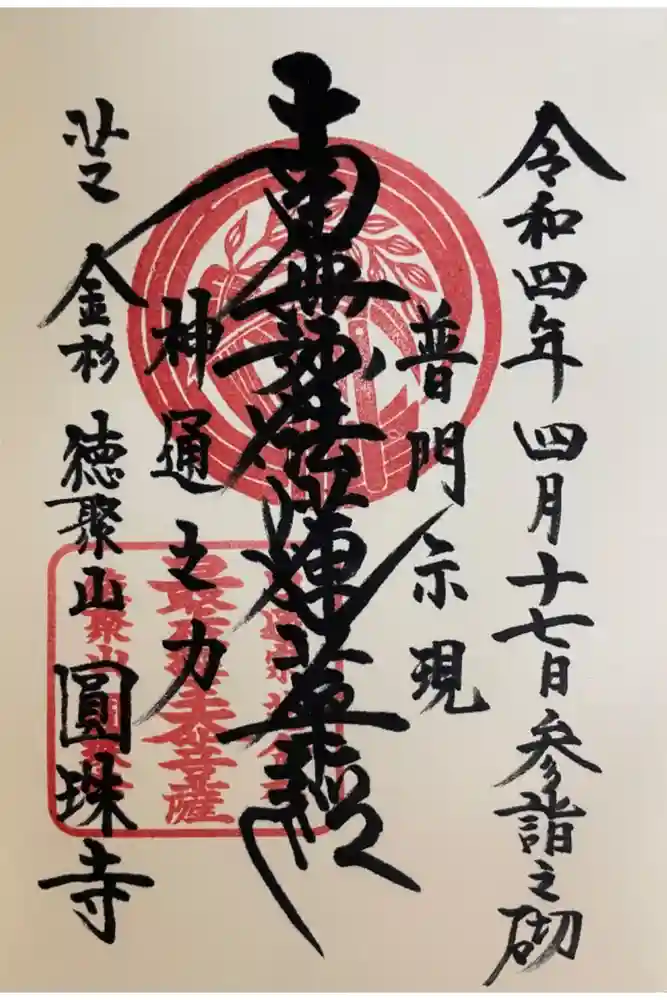 令和四年四月十七日参詣之砌
普門示現
南無妙法蓮華経
神通之力
芝金杉徳聚山圓珠寺